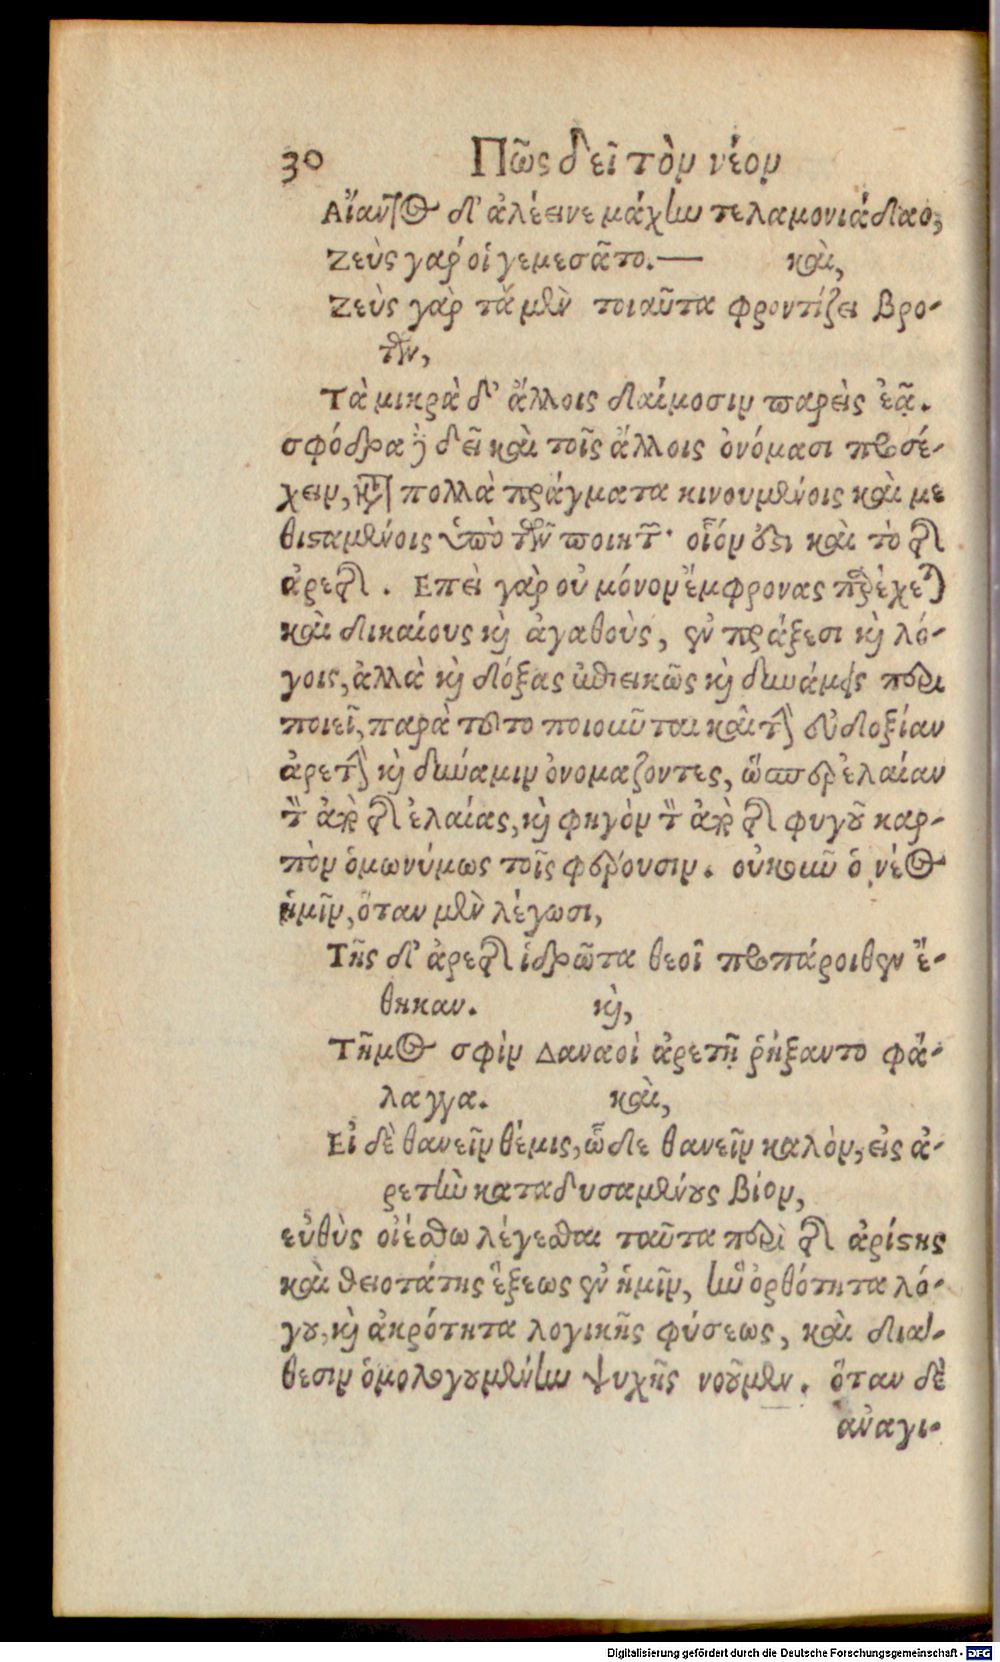 30 Πῶς δεῖ τὸν νέον
Αἴαντος δ' ἀλέεινε μάχην τελαμονιάδαο,
Ζεὺς γάρ οἱ γεμεσᾶτο.— καὶ,
Ζεὺς γὰρ τὰ μὲν τοιαῦτα φροντίζει βρο-
τῶν,
Τὰ μικρὰ δ' ἄλλοις δαίμοσιν παρεὶς ἐᾷ.
σφόδρα δὲ δεῖ καὶ τοῖς ἄλλοις ὀνόμασι προσέ-
χειν, κατὰ πολλὰ πράγματα κινουμένοις καὶ με
θισαμένοις ὑπὸ τῶν ποιητῶν· οἷόν ἐστι καὶ τὸ τῆς
ἀρετῆς. Επεὶ γὰρ οὐ μόνον ἔμφρονας παρέχεται
καὶ δικαίους καὶ ἀγαθοὺς, ἐν πράξεσι καὶ λό-
γοις, ἀλλὰ καὶ δόξας ἐπιεικῶς καὶ δυνάμεις περι
ποιεῖ, παρὰ τοῦτο ποιοῦνται καὶ τὴν εὐδοξίαν
ἀρετὴν καὶ δύναμιν ὀνομαζοντες, ὥσπερ ἐλαίαν
τὸν ἀπὸ τῆς ἐλαίας, καὶ φηγὸν τὸν ἀπὸ τῆς φυγοῦ καρ-
πὸν ὁμωνύμως τοῖς φέρουσιν. οὐκοῦν ὁ νέος
ἡμῖν, ὅταν μὲν λέγωσι,
Τῆς δ' ἀρετῆς ἱδρῶτα θεοὶ προπάροιθεν ἔ-
θηκαν. καὶ,
Τῆμος σφὶν Δαναοὶ ἀρετῇ ῥήξαντο φά-
λαγγα. καὶ,
Εἰ δὲ θανεῖν θέμις, ὧδε θανεῖν καλὸν, εἰς ἀ-
ρετὴν καταδυσαμένους βίον,
εὐθὺς οἰέσθω λέγεσθαι ταῦτα περὶ τῆς ἀρίστης
καὶ θειοτάτης ἕξεως ἐν ἡμῖν, ἣν ὀρθότητα λό-
γου, καὶ ἀκρότητα λογικῆς φύσεως, καὶ διά-
θεσιν ὁμολογουμένην ψυχῆς νοοῦμεν. ὅταν δὲ
ἀναγι-
Digitalisierung gefördert durch die Deutsche Forschungsgemeinschaft - DFG